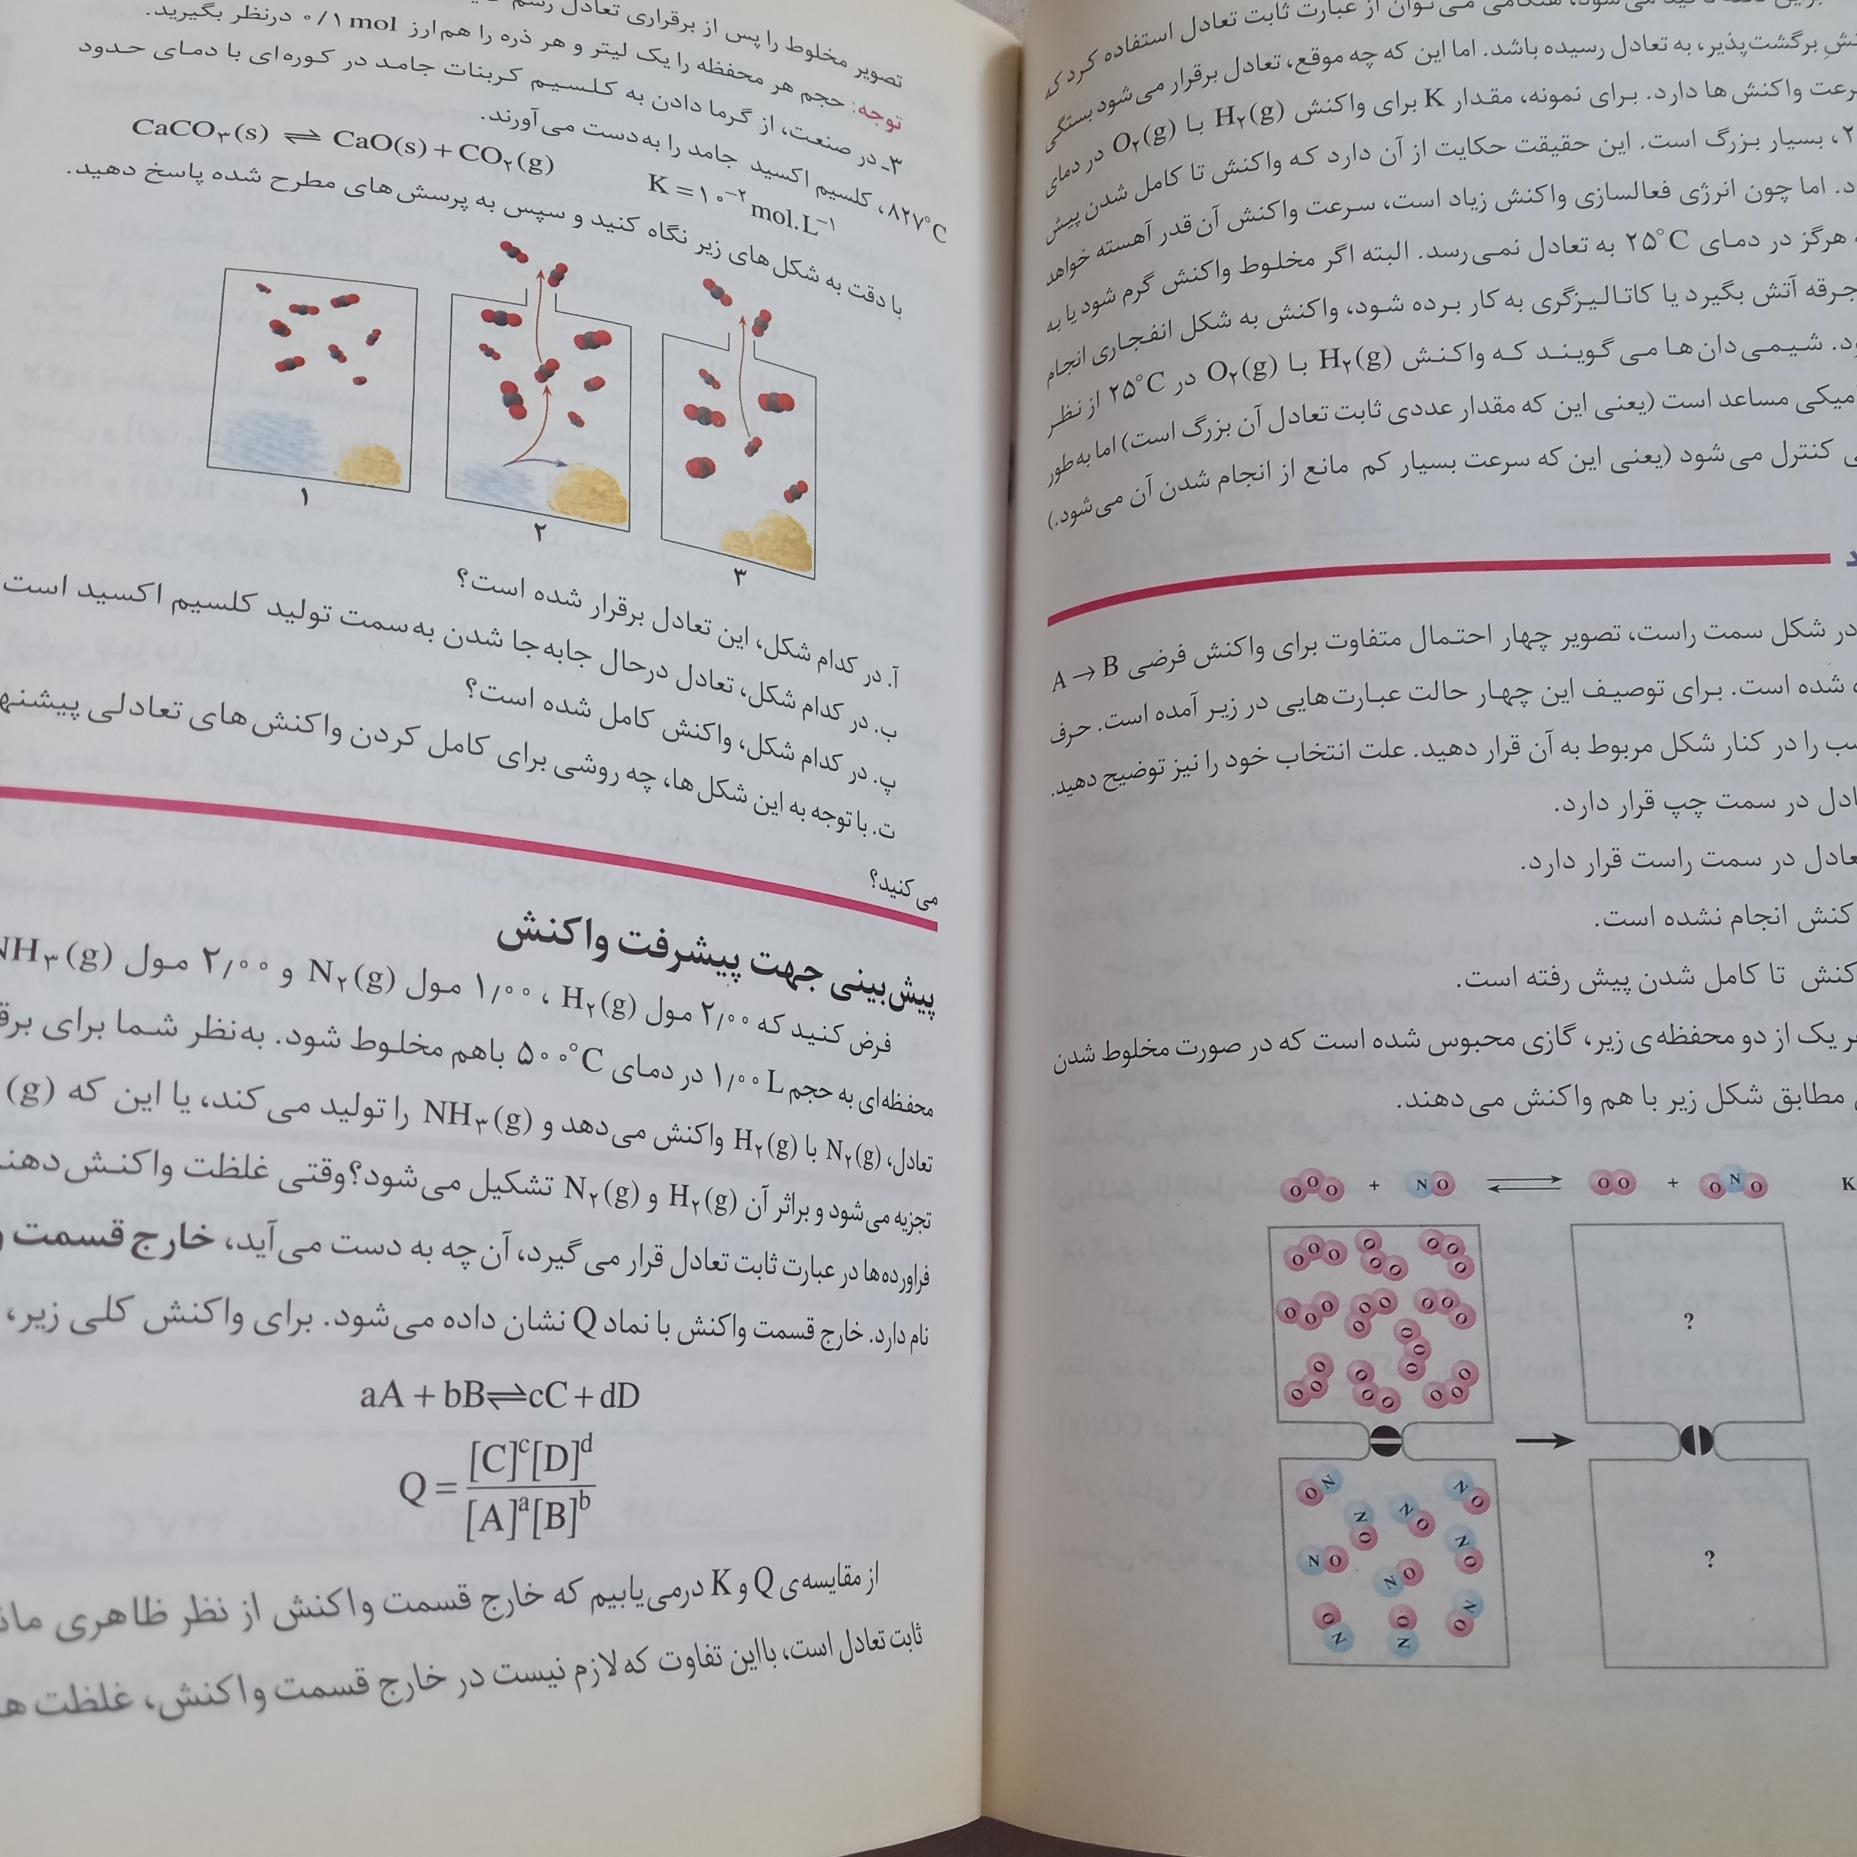 نشِ برگشت‌پذیر، به تعادل رسیده باشد. اما این که چه موقع، تعادل برقرار می‌شود بستگی
رعت واکنش‌ها دارد. برای نمونه، مقدار K برای واکنش H۲(g) با O۲(g) در دمای
۲، بسیار بزرگ است. این حقیقت حکایت از آن دارد که واکنش تا کامل شدن پیش
د. اما چون انرژی فعالسازی واکنش زیاد است، سرعت واکنش آن قدر آهسته خواهد
هرگز در دمای ۲۵°C به تعادل نمی‌رسد. البته اگر مخلوط واکنش گرم شود یا به
جرقه آتش بگیرد یا کاتالیزگری به کار برده شود، واکنش به شکل انفجاری انجام
ود. شیمی‌دان‌ها می‌گویند که واکنش H۲(g) با O۲(g) در ۲۵°C از نظر
میکی مساعد است (یعنی این که مقدار عددی ثابت تعادل آن بزرگ است) اما به‌طور
ی کنترل می‌شود (یعنی این که سرعت بسیار کم مانع از انجام شدن آن می‌شود.)
در شکل سمت راست، تصویر چهار احتمال متفاوت برای واکنش فرضی A → B
ه شده است. برای توصیف این چهار حالت عبارت‌هایی در زیر آمده است. حرف
سب را در کنار شکل مربوط به آن قرار دهید. علت انتخاب خود را نیز توضیح دهید.
ادل در سمت چپ قرار دارد.
عادل در سمت راست قرار دارد.
کنش انجام نشده است.
کنش تا کامل شدن پیش رفته است.
ر یک از دو محفظه‌ی زیر، گازی محبوس شده است که در صورت مخلوط شدن
مطابق شکل زیر با هم واکنش می‌دهند.
OOO + NO ⇌ OO + ONO K
?
?
تصویر مخلوط را پس از برقراری تعادل رسم
توجه: حجم هر محفظه را یک لیتر و هر ذره را هم‌ارز ۰/۱ mol درنظر بگیرید.
۳ـ در صنعت، از گرما دادن به کلسیم کربنات جامد در کوره‌ای با دمای حدود
۸۲۷°C، کلسیم اکسید جامد را به‌دست می‌آورند.
CaCO۳(s) ⇌ CaO(s) + CO۲(g) K = ۱۰⁻² mol.L⁻¹
با دقت به شکل‌های زیر نگاه کنید و سپس به پرسش‌های مطرح شده پاسخ دهید.
۱
۲
۳
آ. در کدام شکل، این تعادل برقرار شده است؟
ب. در کدام شکل، تعادل درحال جابه‌جا شدن به‌سمت تولید کلسیم اکسید است
پ. در کدام شکل، واکنش کامل شده است؟
ت. با توجه به این شکل‌ها، چه روشی برای کامل کردن واکنش‌های تعادلی پیشنها
می‌کنید؟
پیش‌بینی جهت پیشرفت واکنش
فرض کنید که ۲/۰۰ مول H۲(g)، ۱/۰۰ مول N۲(g) و ۲/۰۰ مول NH۳(g)
محفظه‌ای به حجم ۱/۰۰ L در دمای ۵۰۰°C باهم مخلوط شود. به‌نظر شما برای برق
تعادل، N۲(g) با H۲(g) واکنش می‌دهد و NH۳(g) را تولید می‌کند، یا این که (g)
تجزیه می‌شود و براثر آن H۲(g) و N۲(g) تشکیل می‌شود؟ وقتی غلظت واکنش‌دهند
فراورده‌ها در عبارت ثابت تعادل قرار می‌گیرد، آن‌چه به دست می‌آید، خارج قسمت و
نام دارد. خارج قسمت واکنش با نماد Q نشان داده می‌شود. برای واکنش کلی زیر،
aA + bB ⇌ cC + dD
Q = [C]ᶜ[D]ᵈ / [A]ᵃ[B]ᵇ
از مقایسه‌ی Q و K درمی‌یابیم که خارج قسمت واکنش از نظر ظاهری مان
ثابت تعادل است، بااین تفاوت که لازم نیست در خارج قسمت واکنش، غلظت ها